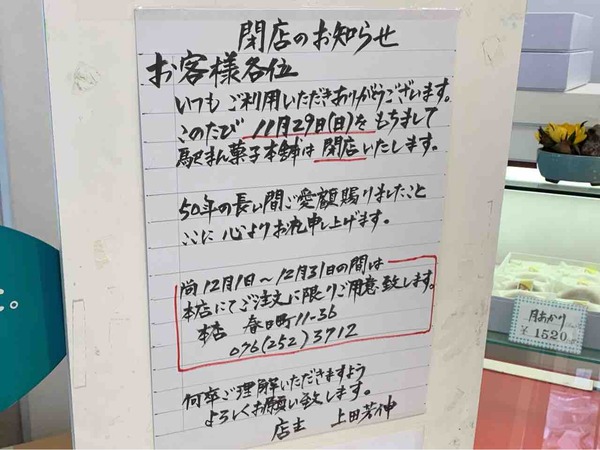 閉店のお知らせ
お客様各位
いつもご利用いただきありがとうございます。
このたび 11月29日(日)をもちまして
駅まん菓子本舗は閉店いたします。
50年の長い間ご愛顧賜りましたこと
ここに心よりお礼申し上げます。
尚12月1日〜12月31日の間は
本店にてご注文に限りご用意致します。
本店 春日町11-36
076(252)3712
何卒ご理解いただきますよう
よろしくお願い致します。
店主 上田芳伸
月あかり
¥1520
た。